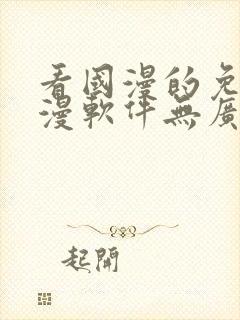 看國漫的免
漫軟件無廣
起開